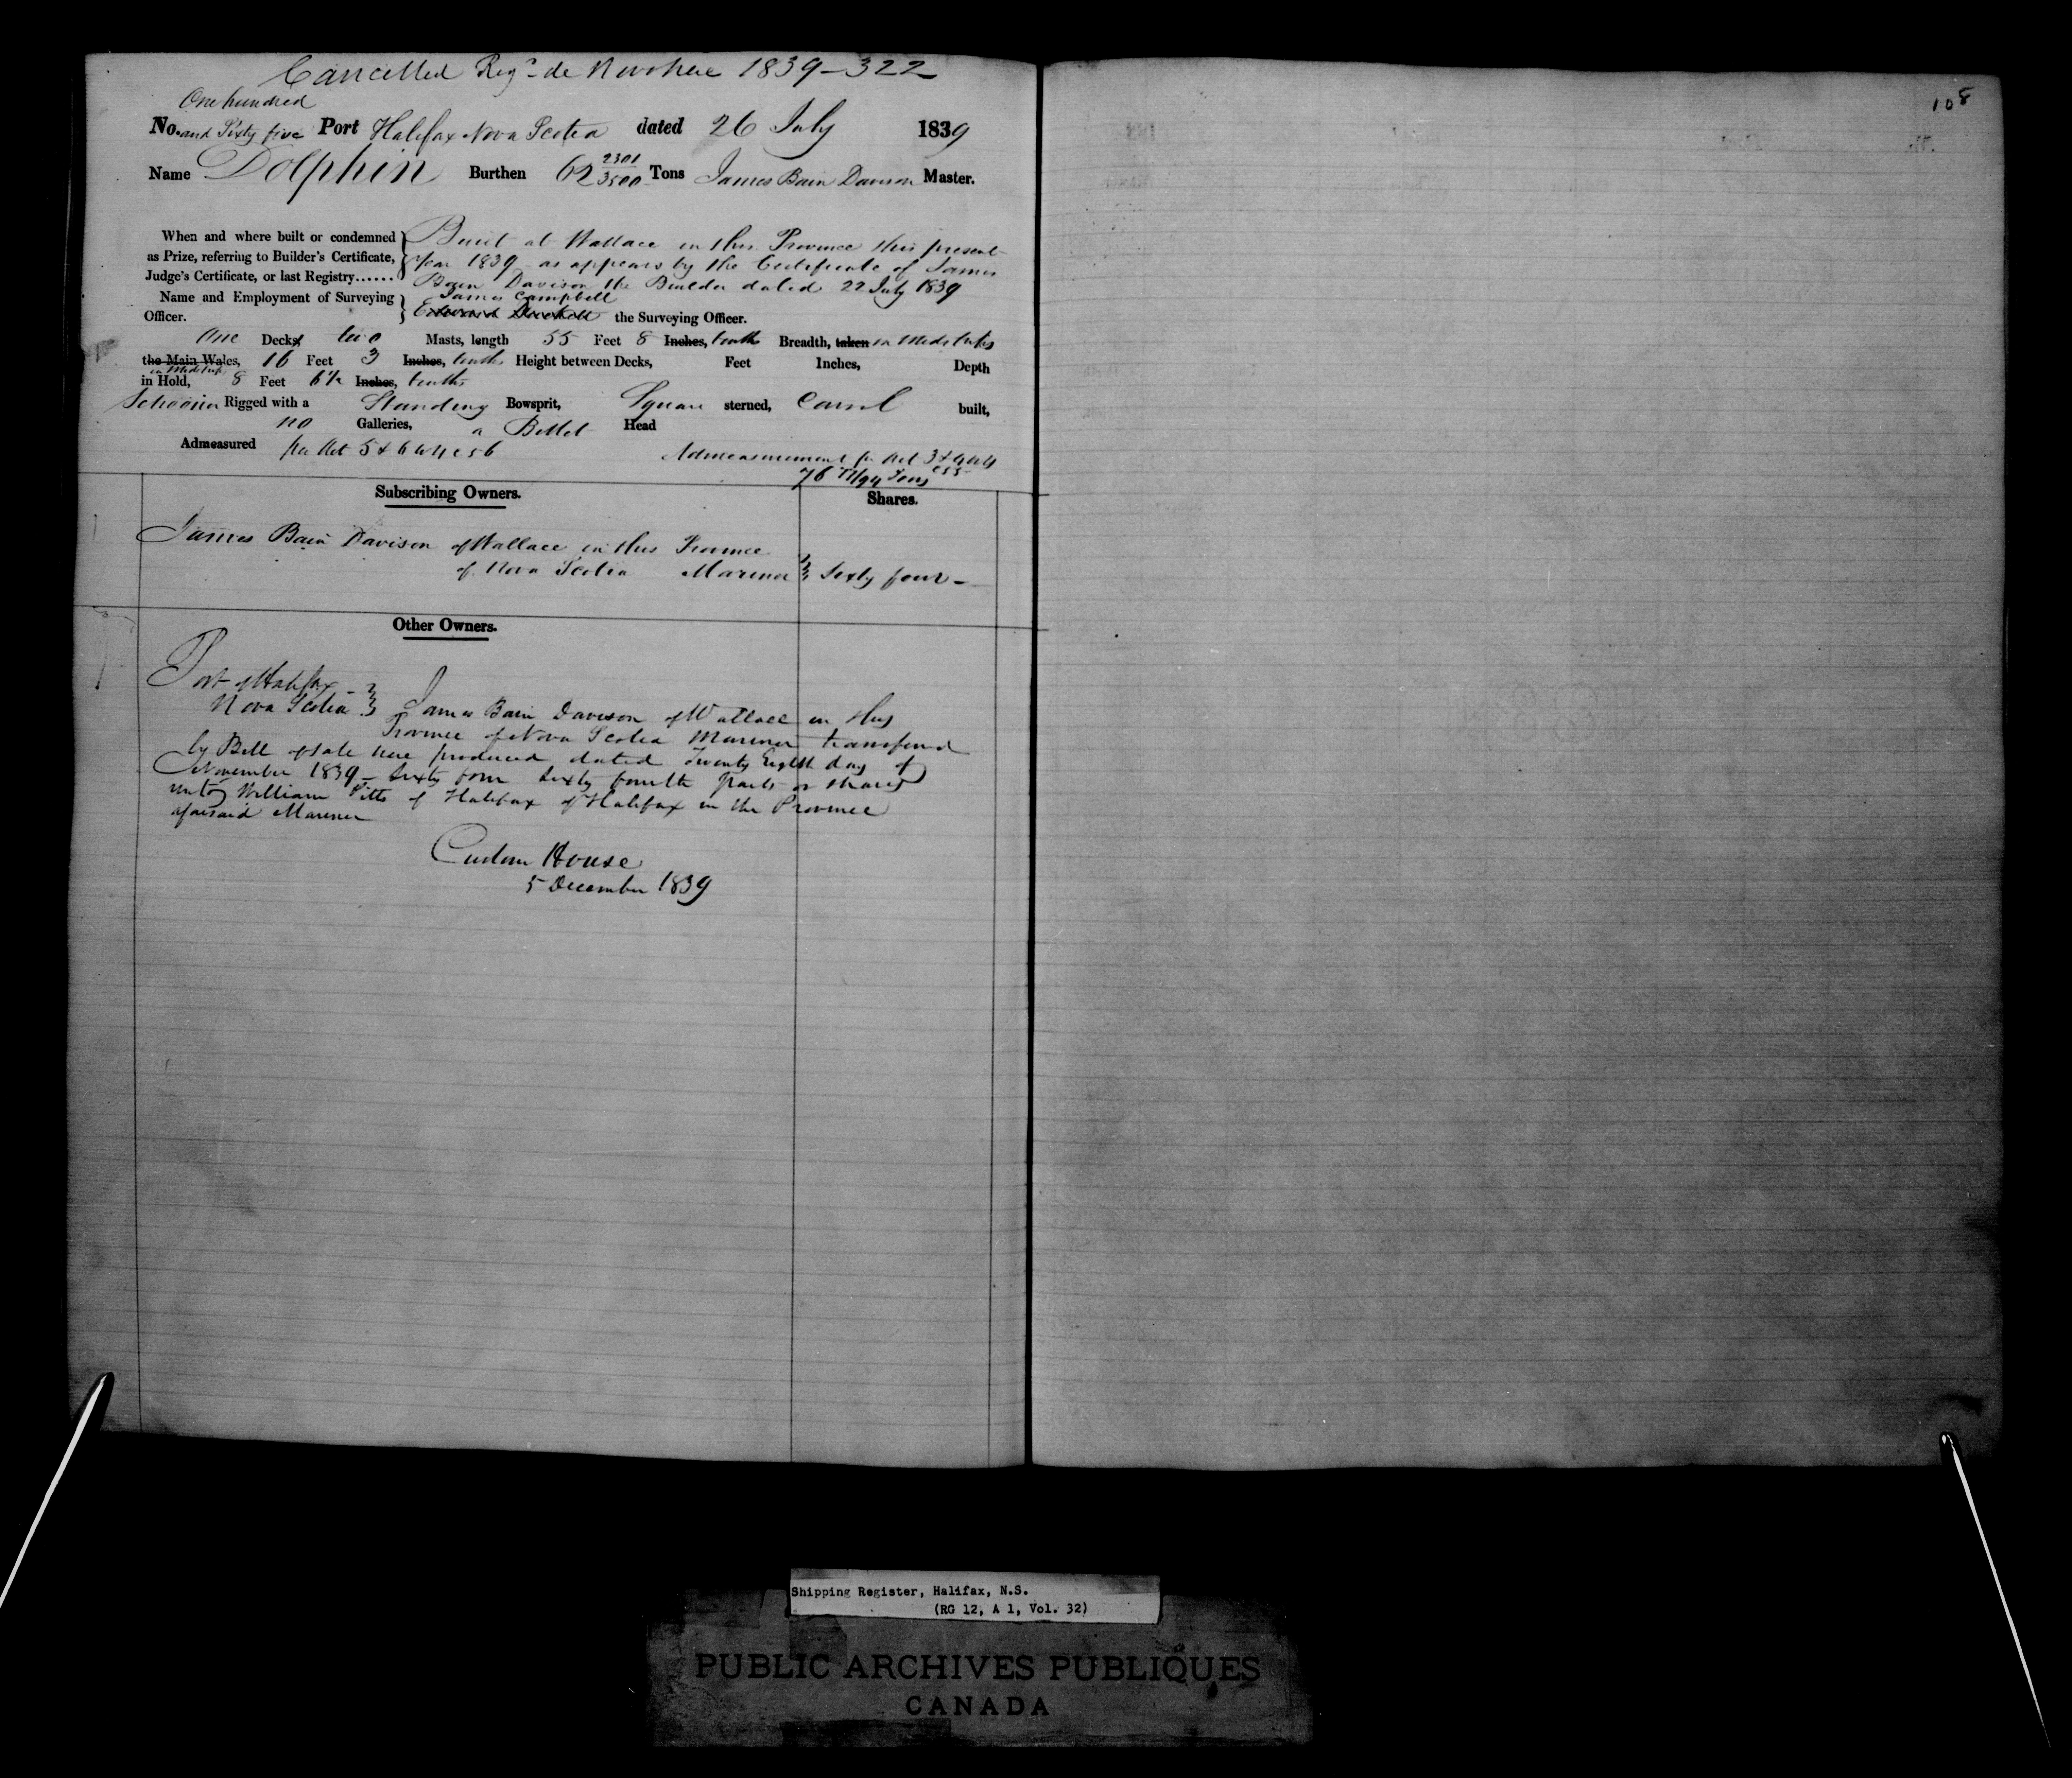 Cancelled Regd de Novo here 1839-322
108
One hundred
No. and Sixty five Port Halifax Nova Scotia dated 26 July 1839
Name Dolphin Burthen 62 2301/3500 Tons James Bain Davison Master.
When and where built or condemned as Prize, referring to Builder's Certificate, Judge's Certificate, or last Registry......
Built at Wallace in this Province this present
Year 1839 as appears by the Certificate of James
Bain Davison the Builder dated 22 July 1839
Name and Employment of Surveying Officer.
James Campbell
the Surveying Officer.
One Decks, two Masts, length 55 Feet 8 Inches, tenths Breadth, taken in Midships
the Main Wales, 16 Feet 3 Inches, tenths Height between Decks, Feet Inches, Depth
in Midships
in Hold, 8 Feet 6 1/2 Inches, tenths
Schooner Rigged with a Standing Bowsprit, Square sterned, Carvel built,
no Galleries, a Billet Head
Admeasured per Act 5 & 6 W 4 c 56
Admeasurement pr Act 3 & 4 W 4 c 55
76 Tons
Subscribing Owners. Shares.
James Bain Davison of Wallace in this Province
of Nova Scotia Mariner } Sixty four -
Other Owners.
Port of Halifax
Nova Scotia } James Bain Davison of Wallace in this
Province of Nova Scotia Mariner transferred
by Bill of Sale here produced dated Twenty Eighth day of
November 1839 - Sixty four Sixty fourth parts or shares
unto William Pitts of Halifax of Halifax in the Province
aforesaid Mariner
Custom House
5 December 1839
Shipping Register, Halifax, N.S.
(RG 12, A 1, Vol. 32)
PUBLIC ARCHIVES PUBLIQUES
CANADA